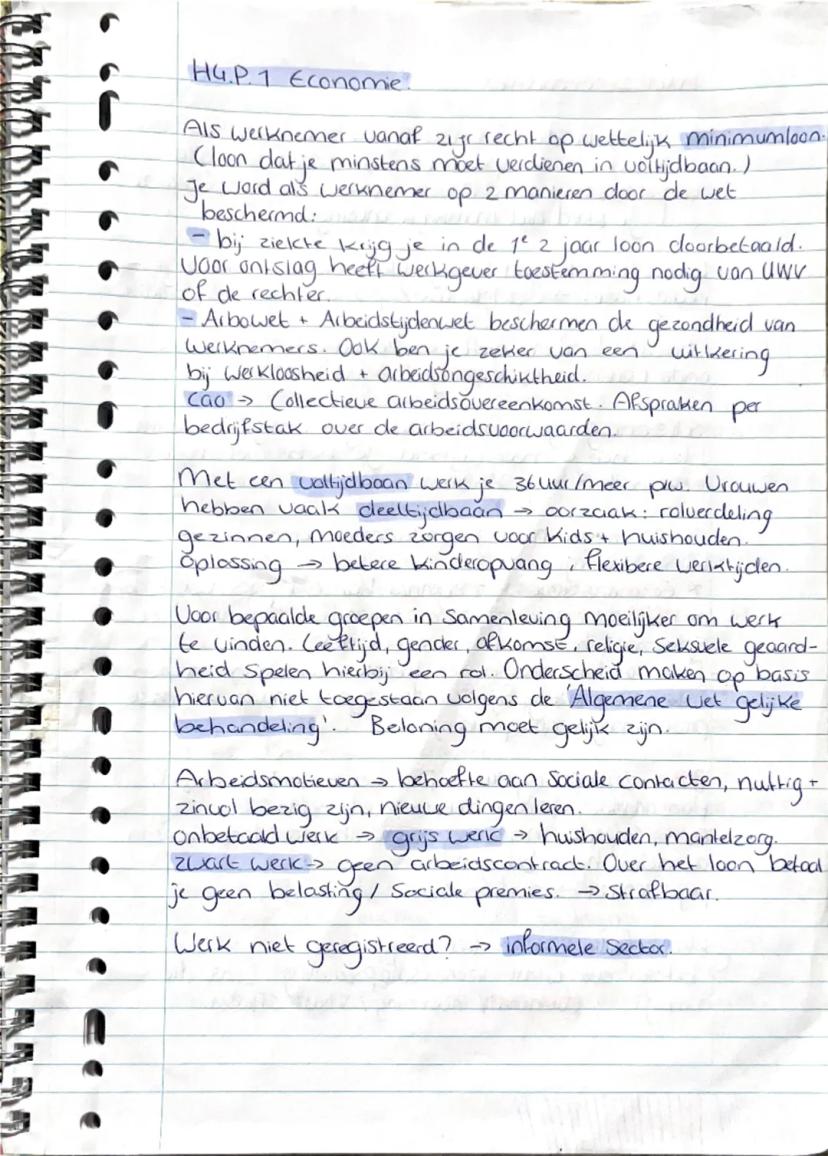 H4.P.1 Economie.
Als werknemer vanaf 21 jr recht op wettelijk minimumloon.
(loon dat je minstens moet verdienen in voltijdbaan.)
Je word als werknemer op 2 manieren door de wet
beschermd:
- bij ziekte krijg je in de 1e 2 jaar loon doorbetaald.
Voor ontslag heeft werkgever toestemming nodig van UWV
of de rechter.
- Arbowet + Arbeidstijdenwet beschermen de gezondheid van
werknemers. Ook ben je zeker van een uitkering
bij werkloosheid + arbeidsongeschiktheid.
cao → Collectieve arbeidsovereenkomst. Afspraken per
bedrijfstak over de arbeidsvoorwaarden.
Met een voltijdbaan werk je 36 uur/meer p.w. Vrouwen
hebben vaak deeltijdbaan → oorzaak: rolverdeling
gezinnen, moeders zorgen voor kids + huishouden.
Oplossing → betere kinderopvang, flexibere werktijden.
Voor bepaalde groepen in samenleving moeilijker om werk
te vinden. Leeftijd, gender, afkomst, religie, seksuele geaard-
heid spelen hierbij een rol. Onderscheid maken op basis
hiervan niet toegestaan volgens de 'Algemene wet gelijke
behandeling'. Beloning moet gelijk zijn.
Arbeidsmotieven → behoefte aan sociale contacten, nuttig +
zinvol bezig zijn, nieuwe dingen leren.
onbetaald werk → grijs werk → huishouden, mantelzorg.
zwart werk → geen arbeidscontract. Over het loon betaal
je geen belasting / sociale premies. → Strafbaar.
Werk niet geregistreerd? → informele sector.